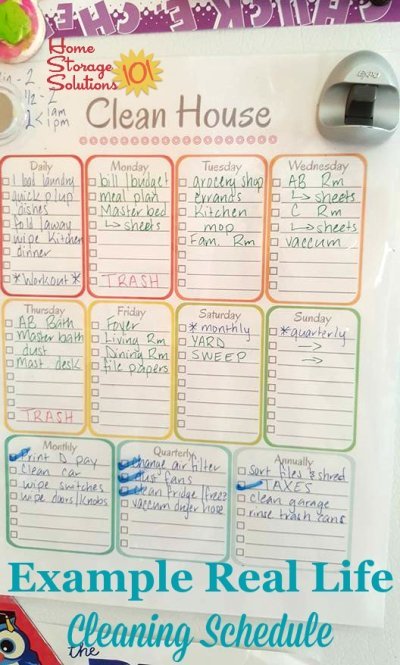 CHUCK E CHEE
Home
Storage
Solutions 101
Clean House
Daily
1 load laundry
quick p/up
dishes
fold/away
wipe kitchen
dinner
*Workout*
Monday
bill/budget
meal plan
Master bed
↳ sheets
TRASH
Tuesday
grocery shop
errands
Kitchen
mop
Fam. Rm
Wednesday
AB Rm
↳ sheets
C Rm
↳ sheets
vaccum
Thursday
AB Bath
Master bath
dust
Mast desk
TRASH
Friday
Foyer
Living Rm
Dining Rm
file papers
Saturday
*monthly
YARD
SWEEP
Sunday
*quarterly
→
→
Monthly
Print D pay
clean car
wipe switches
wipe doors/knobs
Quarterly
change air filter
dust fans
clean fridge/freez
vaccum dryer hose
Annually
sort files & shred
TAXES
clean garage
rinse trash cans
Example Real Life
Cleaning Schedule
the